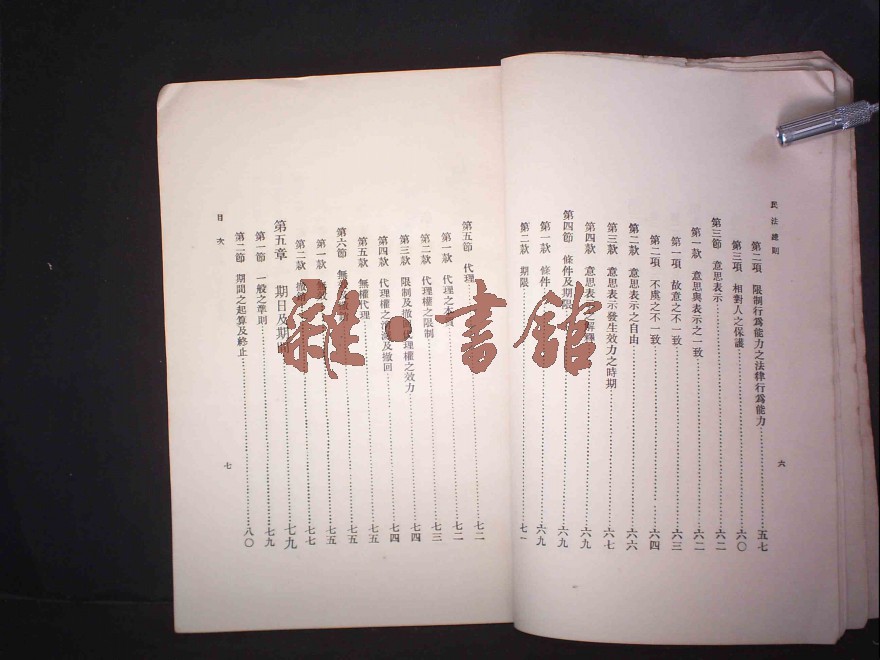 民法總則
第二項 限制行爲能力之法律行爲能力…………五七
第三項 相對人之保護…………六〇
第三節 意思表示…………六二
第一款 意思與表示之一致…………六二
第一項 故意之不一致…………六三
第二項 不虞之不一致…………六四
第二款 意思表示之自由…………六六
第三款 意思表示發生效力之時期…………六七
第四款 意思表示之解釋…………六九
第四節 條件及期限…………六九
第一款 條件…………六九
第二款 期限…………七一
六
第五節 代理…………七二
第一款 代理之本質…………七二
第二款 代理權之限制…………七三
第三款 限制及撤回代理權之效力…………七四
第四款 代理權之消滅及撤回…………七四
第五款 無權代理…………七五
第六節 無效及撤銷…………七五
第一款 無效…………七五
第二款 撤銷…………七七
第五章 期日及期間…………七九
第一節 一般之準則…………七九
第二節 期間之起算及終止…………八〇
目次
七
雜·書館